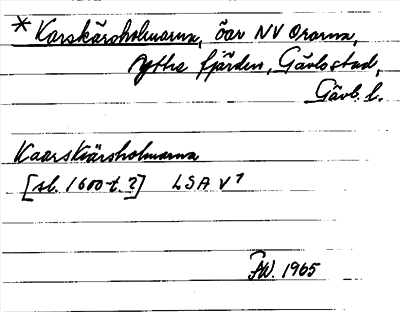 * Karskärsholmarna, öar NV Orarna,
Yttre fjärden, Gävle stad,
Gävl. l.
Kaarskiärsholmarna
[sl. 1600-t. ?] LSA V 1
FW. 1965